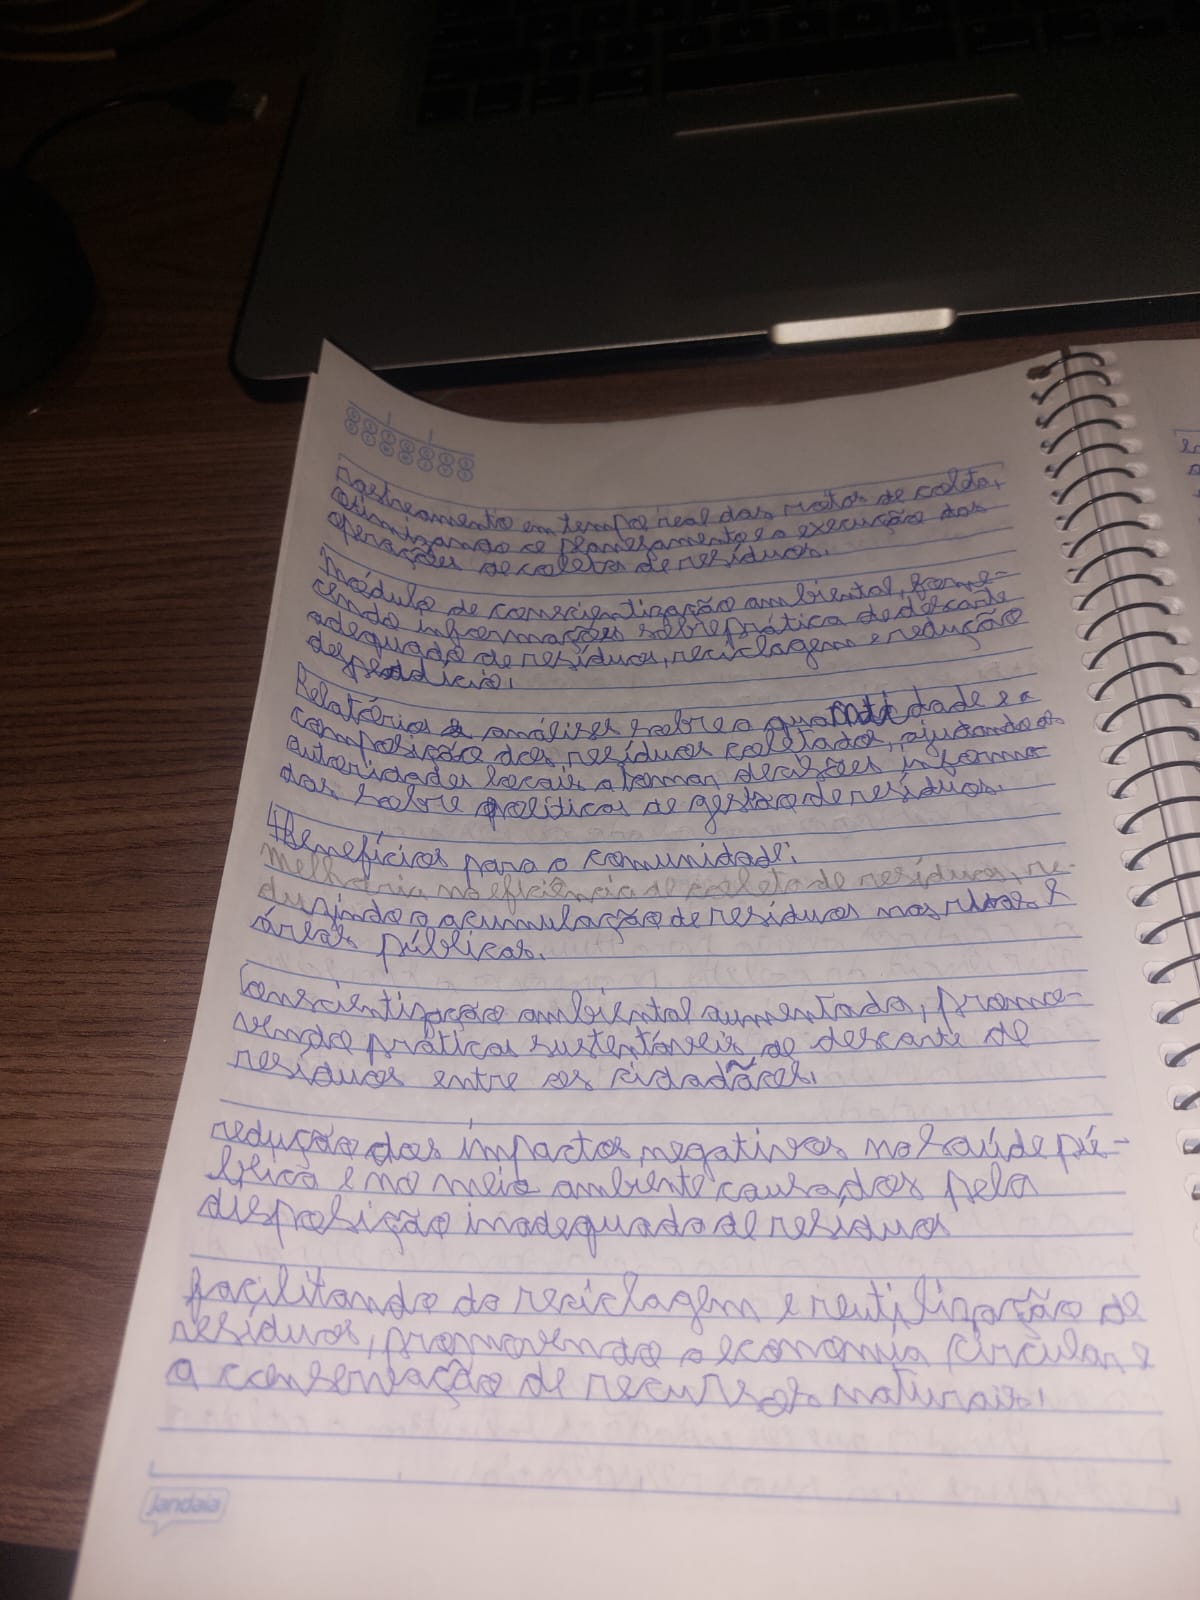 Rastreamento em tempo real das rotas de coleta,
otimizando o planejamento e a execução das
operações de coleta de resíduos.
Módulo de conscientização ambiental, forne-
cendo informações sobre prática de descarte
adequado de resíduos, reciclagem e redução
desperdício.
Relatórios e análises sobre a quantidade e a
composição dos resíduos coletados, ajudando as
autoridades locais a tomar decisões informa
das sobre políticas de gestão de resíduos.
4 Benefícios para a comunidade:
Melhoria na eficiência de coleta de resíduos, re-
duzindo a acumulação de resíduos nas ruas e
áreas públicas.
Conscientização ambiental aumentada, promo-
vendo práticas sustentáveis de descarte de
resíduos entre os cidadães.
redução dos impactos negativos na saúde pú-
blica e no meio ambiente causados pela
disposição inadequada de resíduos
facilitando da reciclagem e reutilização de
resíduos, promovendo a economia circular e
a conservação de recursos naturais.
jandaia